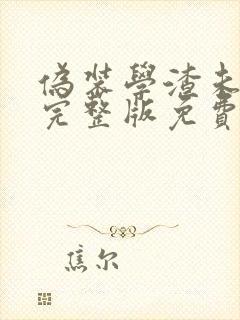 偽裝學渣未
完整版免費
焦尔